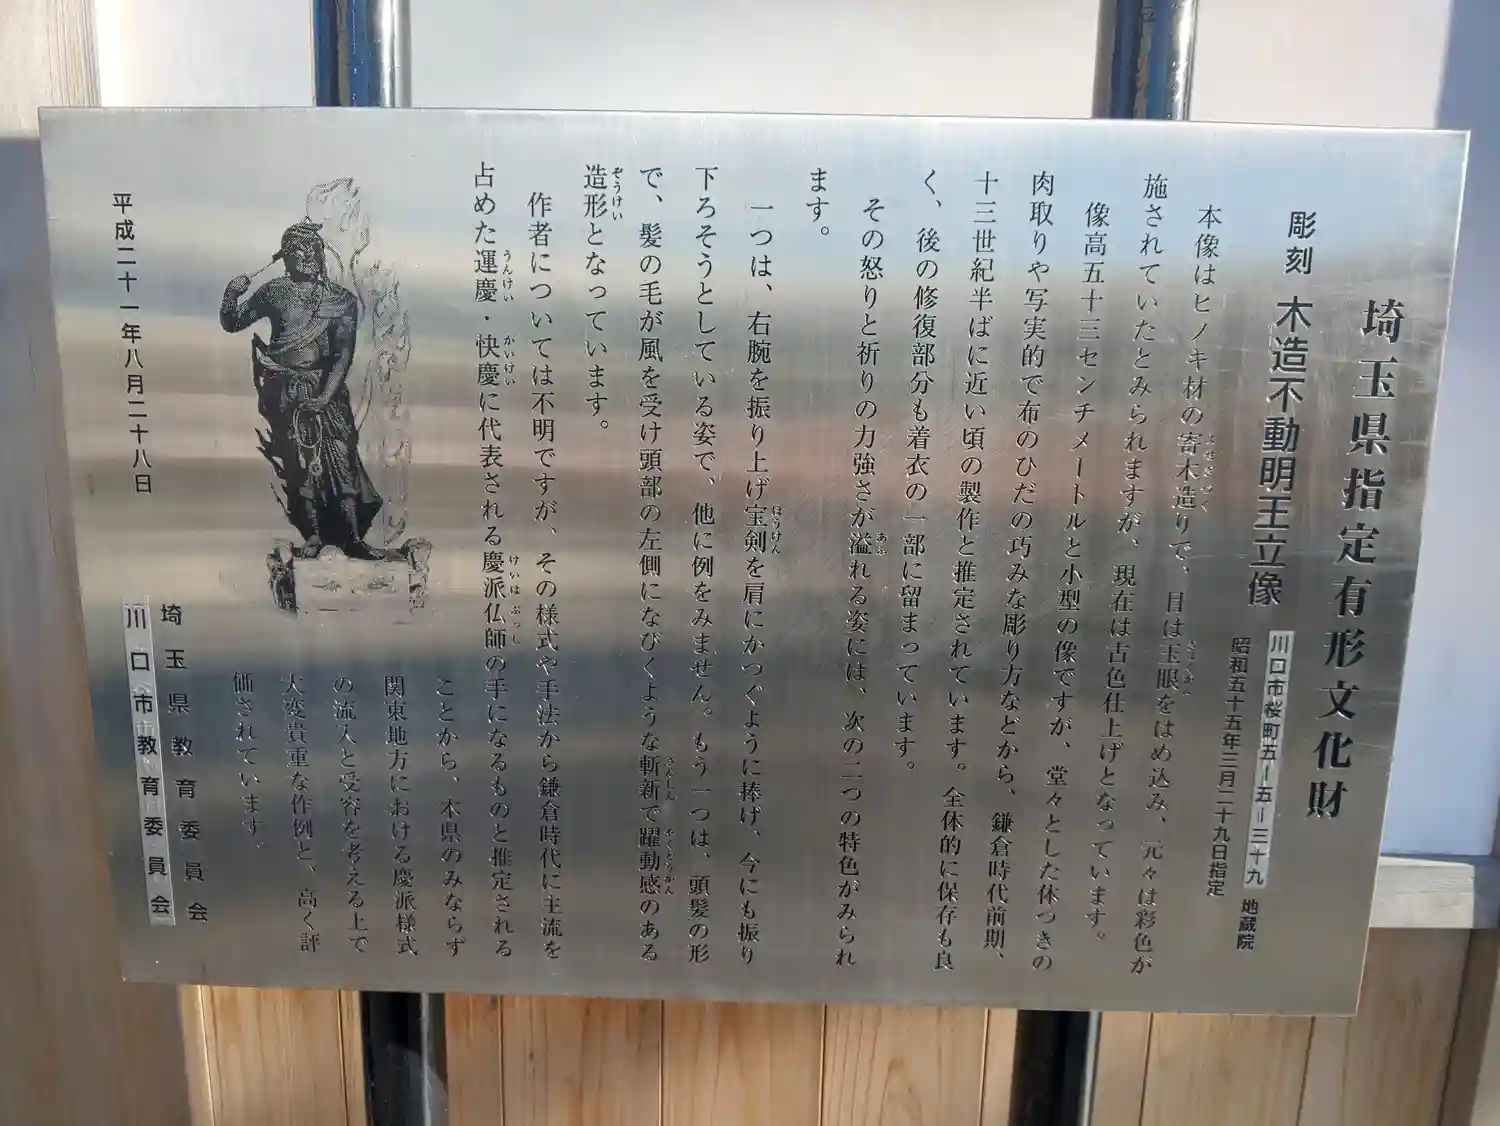 埼玉県指定有形文化財
彫刻 木造不動明王立像
川口市桜町五ー五ー三十九 地蔵院
昭和五十五年三月二十九日指定
本像はヒノキ材の寄木造りで、目は玉眼をはめ込み、元々は彩色が
施されていたとみられますが、現在は古色仕上げとなっています。
像高五十三センチメートルと小型の像ですが、堂々とした体つきの
肉取りや写実的で布のひだの巧みな彫り方などから、鎌倉時代前期、
十三世紀半ばに近い頃の製作と推定されています。全体的に保存も良
く、後の修復部分も着衣の一部に留まっています。
その怒りと祈りの力強さが溢れる姿には、次の二つの特色がみられ
ます。
一つは、右腕を振り上げ宝剣を肩にかつぐように捧げ、今にも振り
下ろそうとしている姿で、他に例をみません。もう一つは、頭髪の形
で、髪の毛が風を受け頭部の左側になびくような斬新で躍動感のある
造形となっています。
作者については不明ですが、その様式や手法から鎌倉時代に主流を
占めた運慶・快慶に代表される慶派仏師の手になるものと推定される
ことから、本県のみならず
関東地方における慶派様式
の流入と受容を考える上で
大変貴重な作例と、高く評
価されています。
平成二十一年八月二十八日
埼玉県教育委員会
川口市教育委員会